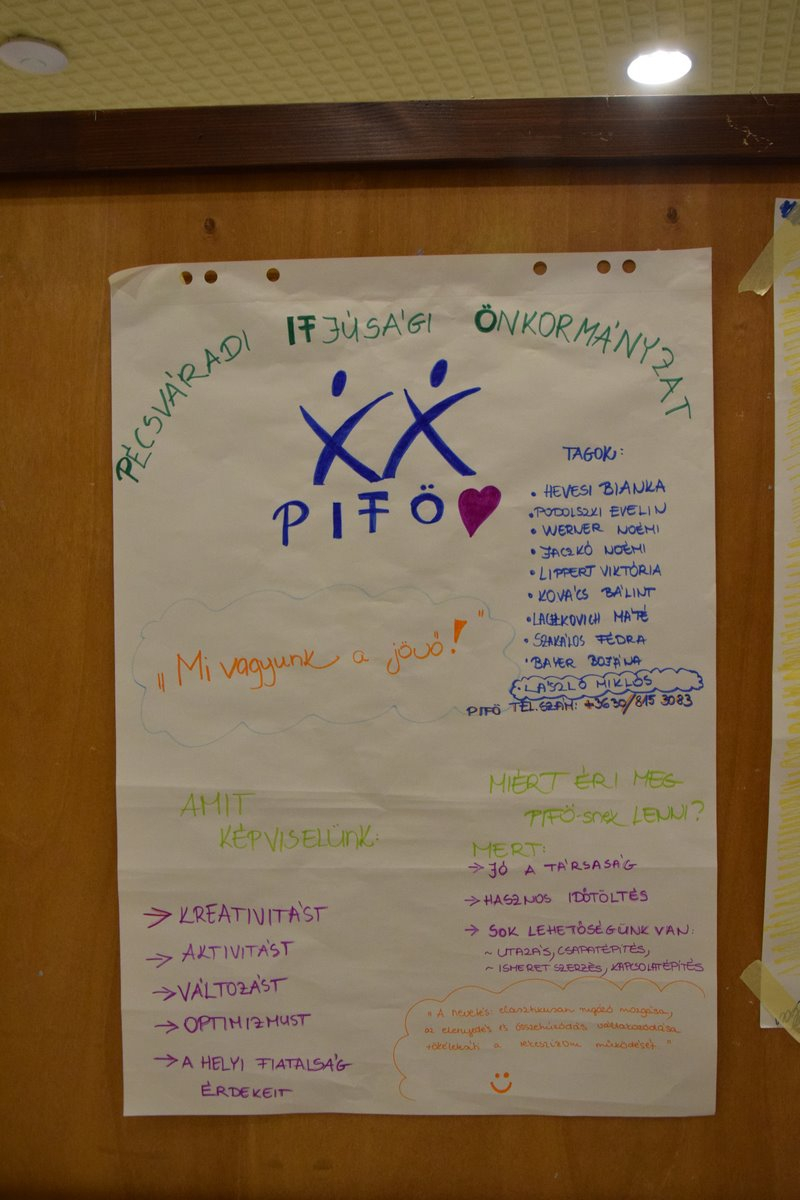 PÉCSVÁRADI IFJÚSÁGI ÖNKORMÁNYZAT
PIFÖ
TAGOK:
• HEVESI BIANKA
• PODOLSZKI EVELIN
• WERNER NOÉMI
• JACZKÓ NOÉMI
• LIPPERT VIKTÓRIA
• KOVÁCS BÁLINT
• LACZKOVICH MÁTÉ
• SZAKÁLOS FÉDRA
• BAYER BOJÁNA
• LÁSZLÓ MIKLÓS
PIFÖ TEL.SZÁM: +3630/815 3083
„Mi vagyunk a jövő!"
AMIT
KÉPVISELÜNK:
→ KREATIVITÁST
→ AKTIVITÁST
→ VÁLTOZÁST
→ OPTIMIZMUST
→ A HELYI FIATALSÁG
ÉRDEKEIT
MIÉRT ÉRI MEG
PIFÖ-snek LENNI?
MERT:
→ JÓ A TÁRSASÁG
→ HASZNOS IDŐTÖLTÉS
→ SOK LEHETŐSÉGÜNK VAN:
~ UTAZÁS, CSAPATÉPÍTÉS,
~ ISMERET SZERZÉS, KAPCSOLATÉPÍTÉS
„A nevetés: elasztikusan rugózó mozgása,
az elernyedés és összehúzódás váltakozódása
a rekeszizom működését."